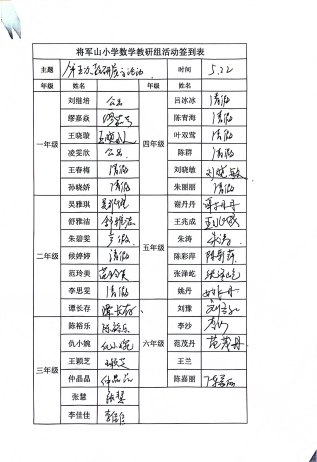 将军山小学数学教研组活动签到表
主题 时间 5.22
年级 姓名 年级 姓名
一年级 四年级
刘继培 公出 吕冰冰 请假
缪嘉焱 缪嘉焱 陈青海 请假
王晓璇 王晓璇 叶双莺 请假
凌雯欣 公出 陈群 请假
王春梅 请假 刘晓敏 刘晓敏
孙晓娇 请假 朱丽丽 请假
二年级 五年级
吴雅琪 吴雅琪 谢丹丹 谢丹丹
舒雅洁 舒雅洁 王兆成 王兆成
朱碧雯 产假 朱涛 朱涛
候婷婷 请假 陈彩萍 陈彩萍
范玲美 范玲美 张泽屹 张泽屹
李思雯 请假 姚丹 姚丹
谭长存 谭长存 刘豫 刘豫
三年级 六年级
陈裕乐 陈裕乐 李沙 李沙
仇小婉 仇小婉 范茂丹 范茂丹
王颖芝 王颖芝 王兰
仲晶晶 仲晶晶 陈嘉丽 陈嘉丽
张慧 张慧
李佳佳 李佳佳